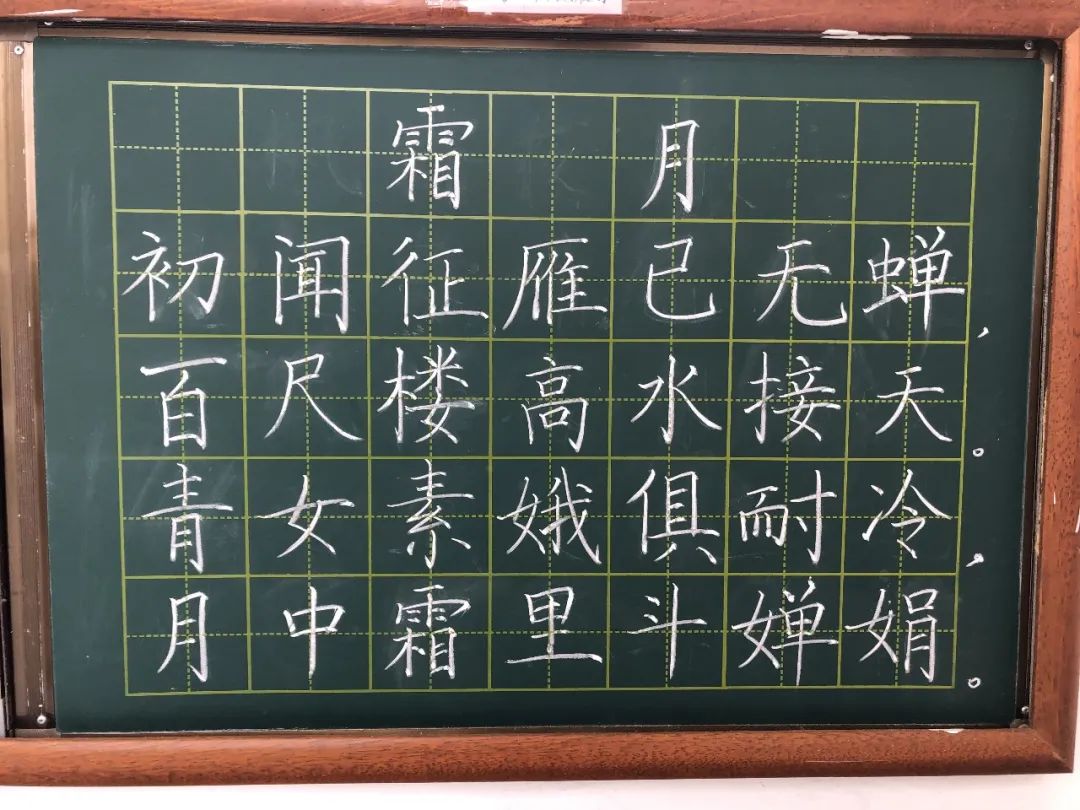 霜 月
初闻征雁已无蝉，
百尺楼高水接天。
青女素娥俱耐冷，
月中霜里斗婵娟。